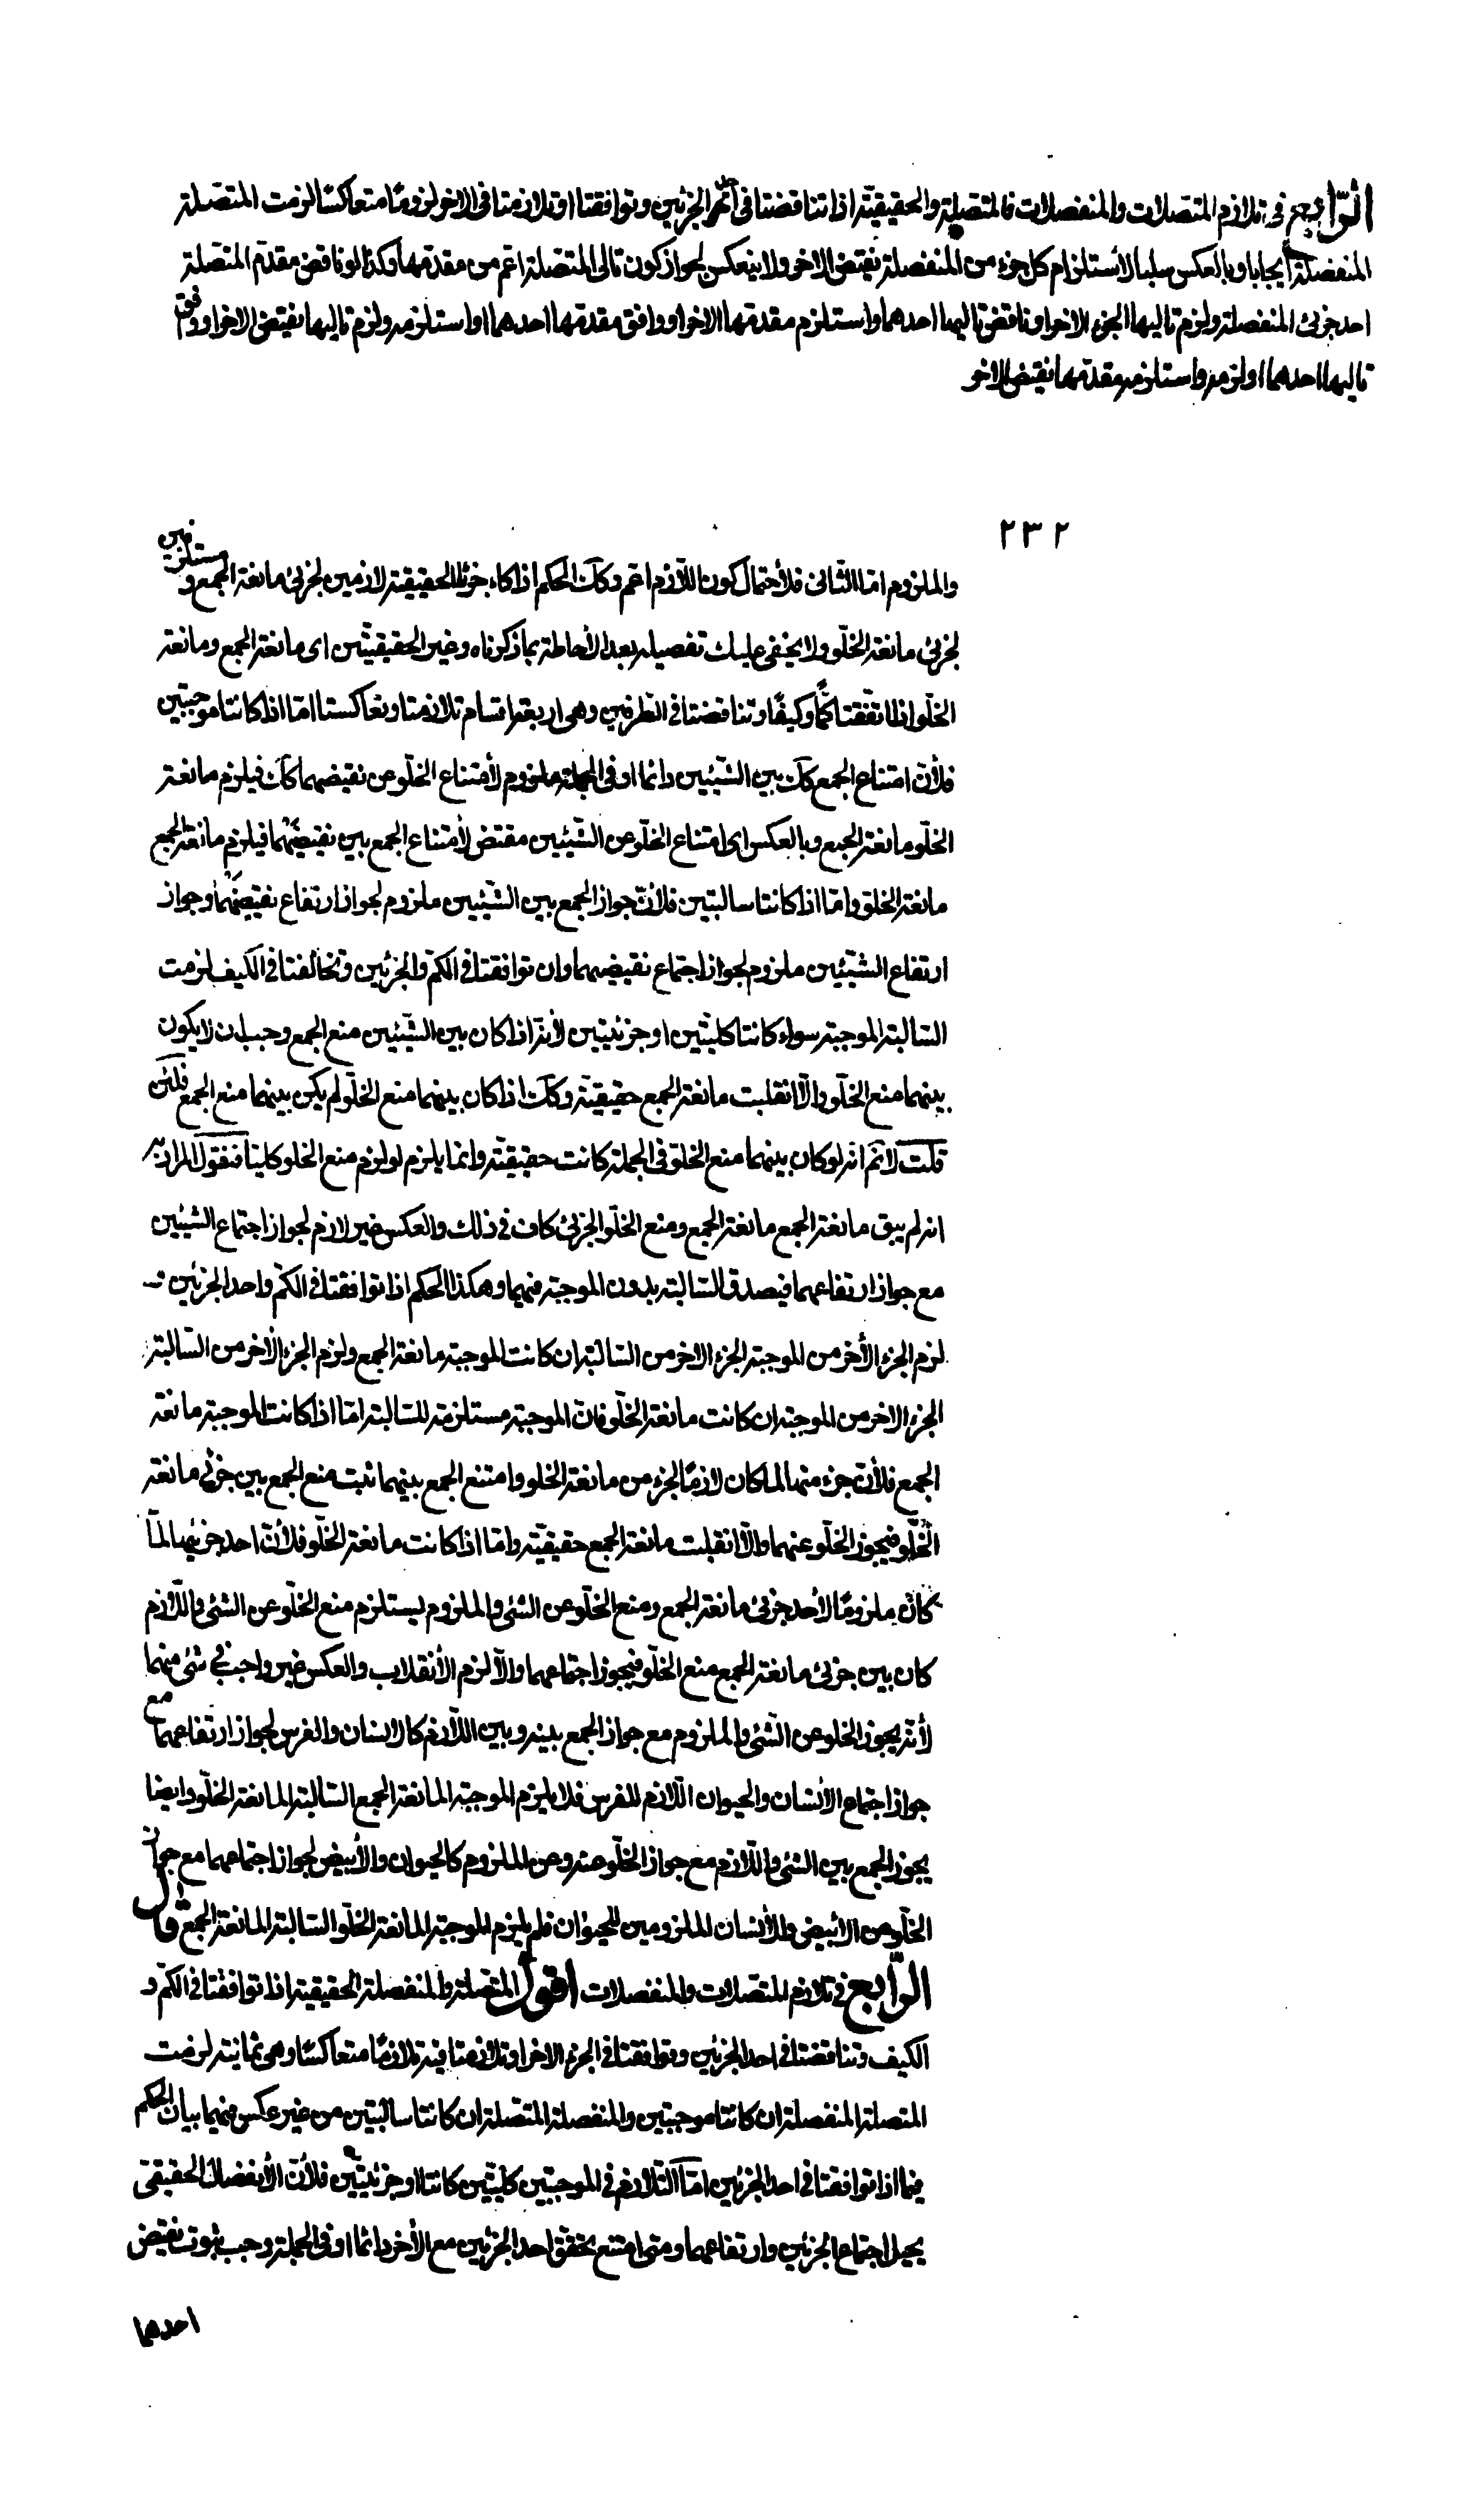 الرابع في تلازم المتصلات والمنفصلات فالمتصلة والحقيقية اذا تناقضتا في احد الجزئين وتوافقتا او تلازمتا في الاخر لزوما متعاكسا لزمت المتصلة
المنفصلة ايجابا وبالعكس سلبا لاستلزام كل جزء من المنفصلة نقيض الاخر ولا ينعكس لجواز كون تالى المتصلة اعم من مقدمها وكذا لو ناقض مقدم المتصلة
احد جزئى المنفصلة ولزم تاليها الجزء الاخر او ناقض تاليها احدهما واستلزم مقدمها الاخر او وافق مقدمها احدهما او استلزمه ولزم تاليها نقيض الاخر او وافق
تاليها احدهما او لزمه واستلزمه مقدمها نقيض الاخر
٢٣٢
والملزوم اما الثانى فلأحتمال كون اللازم اعم وكك الحكم اذا كاء جزئا الحقيقية لازمين لجزئى مانعة الجمع و مستلزمين
لجزئى مانعة الخلو ولا يخفى عليك تفصيله بعد الأحاطة بما ذكرناه وغير الحقيقيتين اى مانعة الجمع ومانعة
الخلو اذا اتفقتا كما وكيفا وتناقضتا في الطرفين وهى اربعة اقسام تلازمتا وتعاكستا اما اذا كانتا موجبتين
فلأن امتناع الجمع كك بين الشيئين دائما او فى الجملة ملزوم لأمتناع الخلو عن نقيضهما كك فيلزم مانعة
الخلو مانعة الجمع وبالعكس اى امتناع الخلو عن الشيئين مقتض لأمتناع الجمع بين نقيضيهما فيلزم مانعة الجمع
مانعة الخلو واما اذا كانتا سالبتين فلأن جواز الجمع بين الشيئين ملزوم لجواز ارتفاع نقيضيهما وجواز
ارتفاع الشيئين ملزوم لجواز اجتماع نقيضيهما وان توافقتا في الكم والجزئين وتخالفتا في الكيف لزمت
السالبة الموجبة سواء كانتا كليتين او جزئيتين لأنه اذا كان بين الشيئين منع الجمع وجب ان لا يكون
بينهما منع الخلو والا انقلبت مانعة الجمع حقيقية وكك اذا كان بينهما منع الخلو لم يكن بينهما منع الجمع فلئن
قلت لا نم انه لو كان بينهما منع الخلو فى الجملة كانت حقيقية وانما يلزم لو لزم منع الخلو كليا فنقول المراد به
انه لم يبق مانعة الجمع مانعة الجمع ومنع الخلو الجزئى كاف في ذلك والعكس غير لازم لجواز اجتماع الشيئين
مع جواز ارتفاعهما فيصدق السالبة بدون الموجبة فيهما وهكذا الحكم اذا توافقتا في الكم واحد الجزئين و
لزم الجزء الأخر من الموجبة الجزء الاخر من السالبة ان كانت الموجبة مانعة الجمع ولزم الجزء الأخر من السالبة
الجزء الاخر من الموجبة ان كانت مانعة الخلو فان الموجبة مستلزمة للسالبة اما اذا كانت الموجبة مانعة
الجمع فلأن جزء منها لما كان لازما لجزء من مانعة الخلو وامتنع الجمع بينهما ثبت منع الجمع بين جزئى مانعة
الخلو فيجوز الخلو عنهما والا انقلبت مانعة الجمع حقيقية واما اذا كانت مانعة الخلو فلأن احد جزئيها لما
كان ملزوما لأحد جزئى مانعة الجمع ومنع الخلو عن الشئ والملزوم يستلزم منع الخلو عن الشئ واللازم
كان بين جزئى مانعة الجمع منع الخلو فيجوز اجتماعهما والا لزم الأنقلاب والعكس غير واجب في شئ منهما
لأنه يجوز الخلو عن الشئ والملزوم مع جواز الجمع بينه وبين اللازم كالانسان والفرس لجواز ارتفاعهما مع
جواز اجتماع الأنسان والحيوان اللازم للفرس فلا يلزم الموجبة المانعة الجمع السالبة المانعة الخلو وايضا
يجوز الجمع بين الشئ واللازم مع جواز الخلو عنه وعن الملزوم كالحيوان والأبيض لجواز اجتماعهما مع جواز
الخلو عن الأبيض والأنسان الملزومين للحيوان فلم يلزم الموجبة المانعة الخلو السالبة المانعة الجمع قال
الرابع في تلازم المتصلات والمنفصلات اقول المتصلة والمنفصلة الحقيقية اذا توافقتا في الكم و
الكيف وتناقضتا في احد الجزئين وتوافقتا في الجزء الاخر او تلازمتا فيه تلازما متعاكسا وهى ثمانية لزمت
المتصلة المنفصلة ان كانتا موجبتين والمنفصلة المتصلة ان كانتا سالبتين من غير عكس فيهما بيان الحكم
فيما اذا توافقتا في احد الجزئين اما التلازم في الموجبتين كليتين كانتا او جزئيتين فلأن الأنفصال الحقيقى
يحيل اجتماع الجزئين وارتفاعهما ومتى امتنع تحقق احد الجزئين مع الأخر دائما او فى الجملة وجب ثبوت نقيض
احدهما